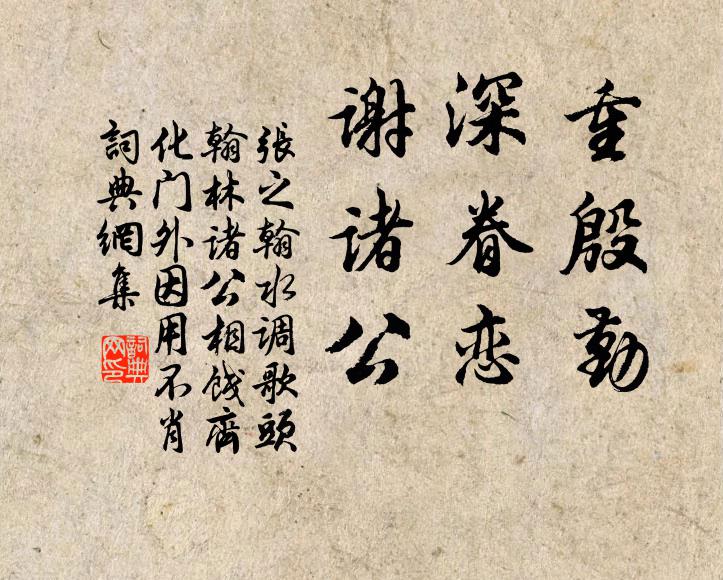 重殷勤
深眷恋
谢诸公
張之翰水调歌頭
翰林诸公相餞齊
化门外因用不肖
詞典網集
詞典
网印